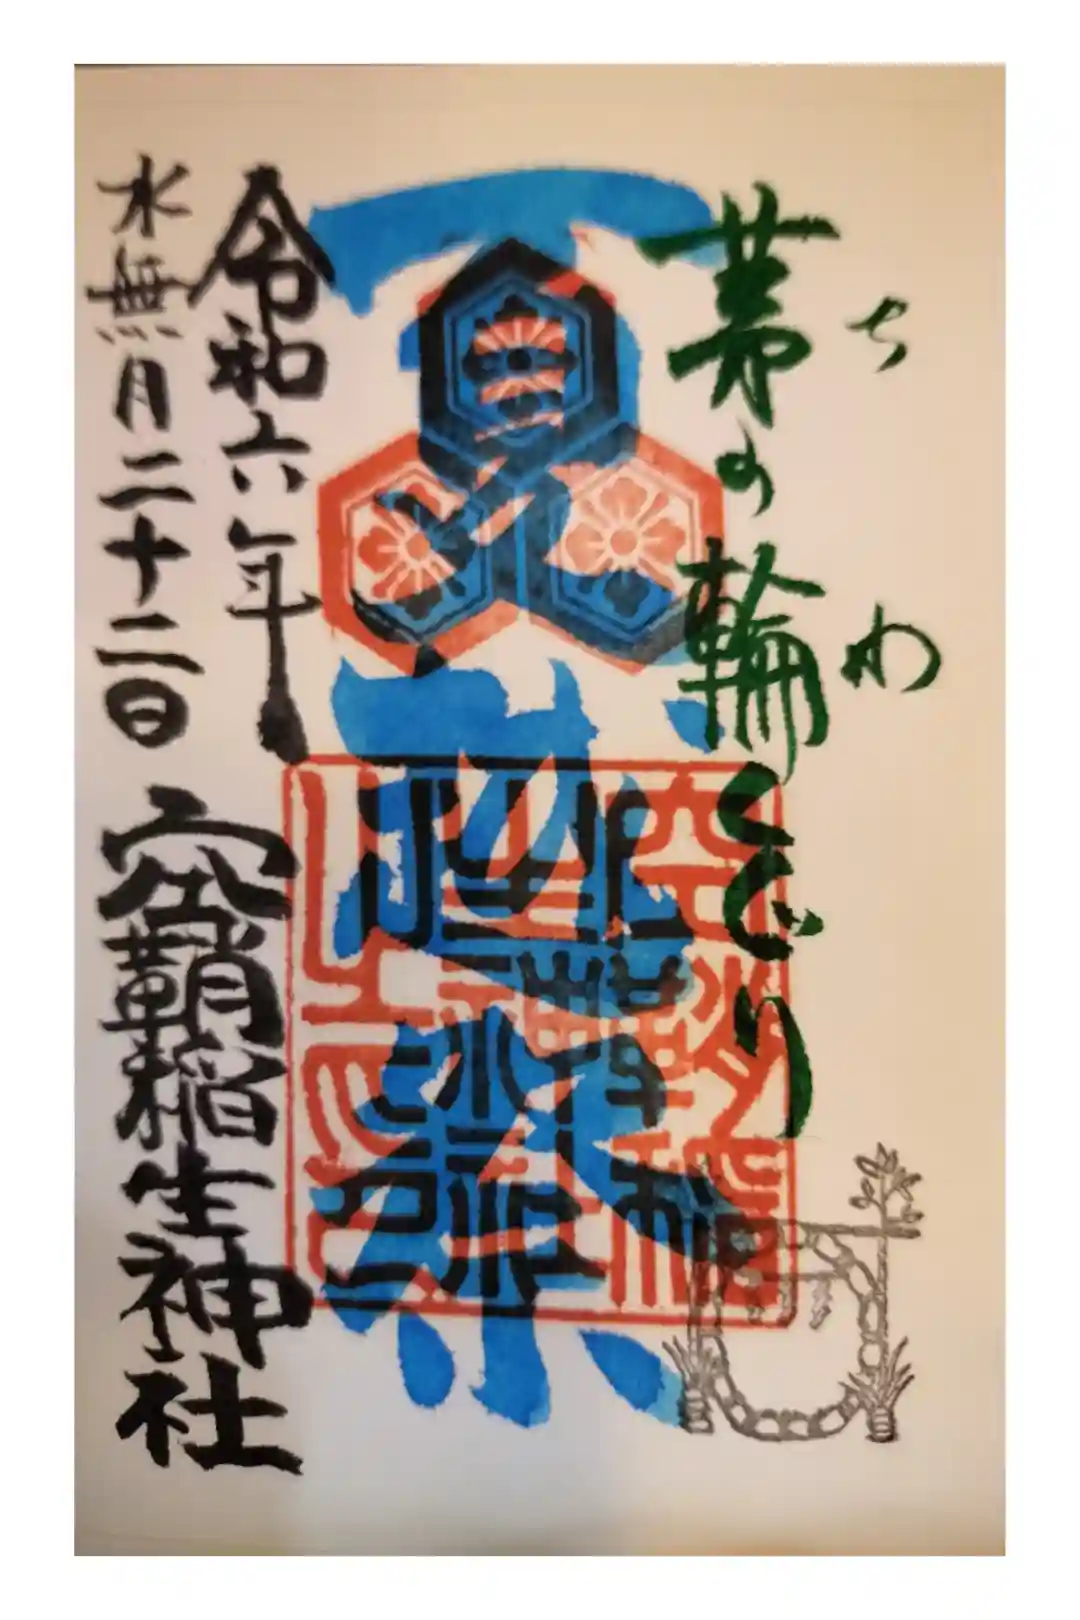 ち わ
茅の輪くぐり
夏祭
空鞘稲
生神社
之印
令和六年
水無月二十二日
空鞘稲生神社